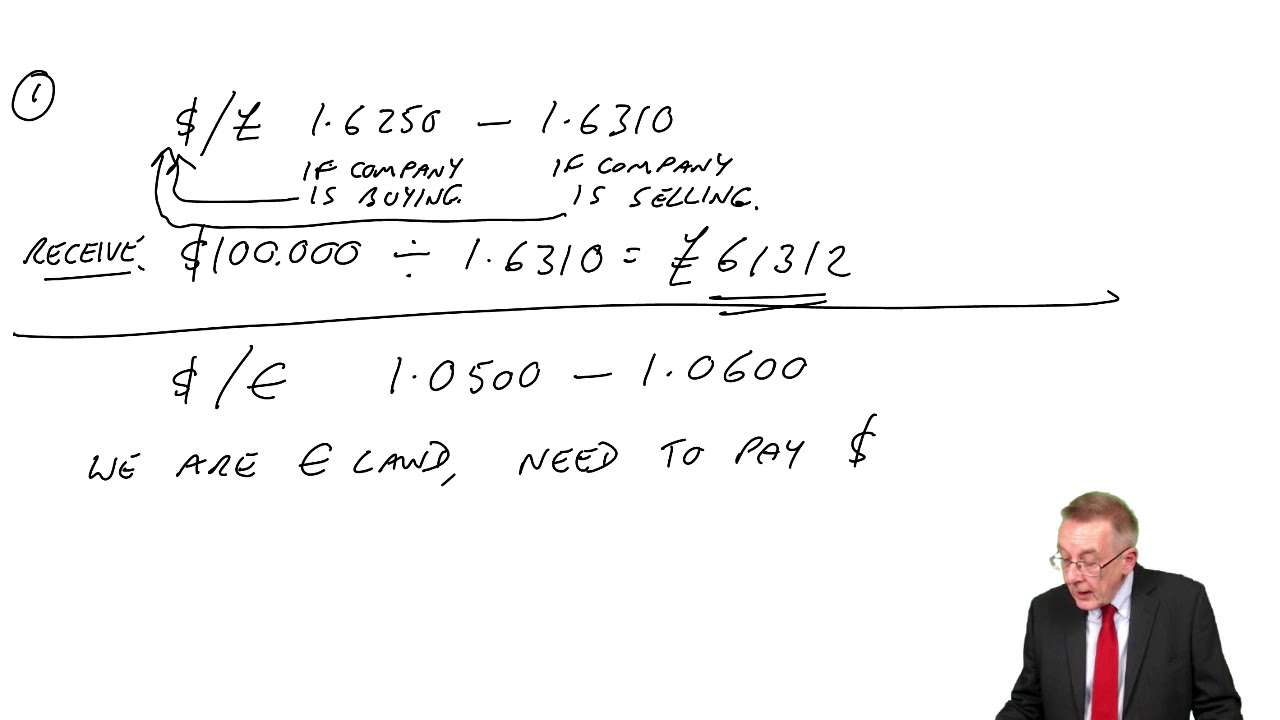 1
$/£ 1.6250 – 1.6310
IF COMPANY IF COMPANY
IS BUYING. IS SELLING.
RECEIVE: $100.000 ÷ 1.6310 = £61312
$/€ 1.0500 – 1.0600
WE ARE € LAND, NEED TO PAY $